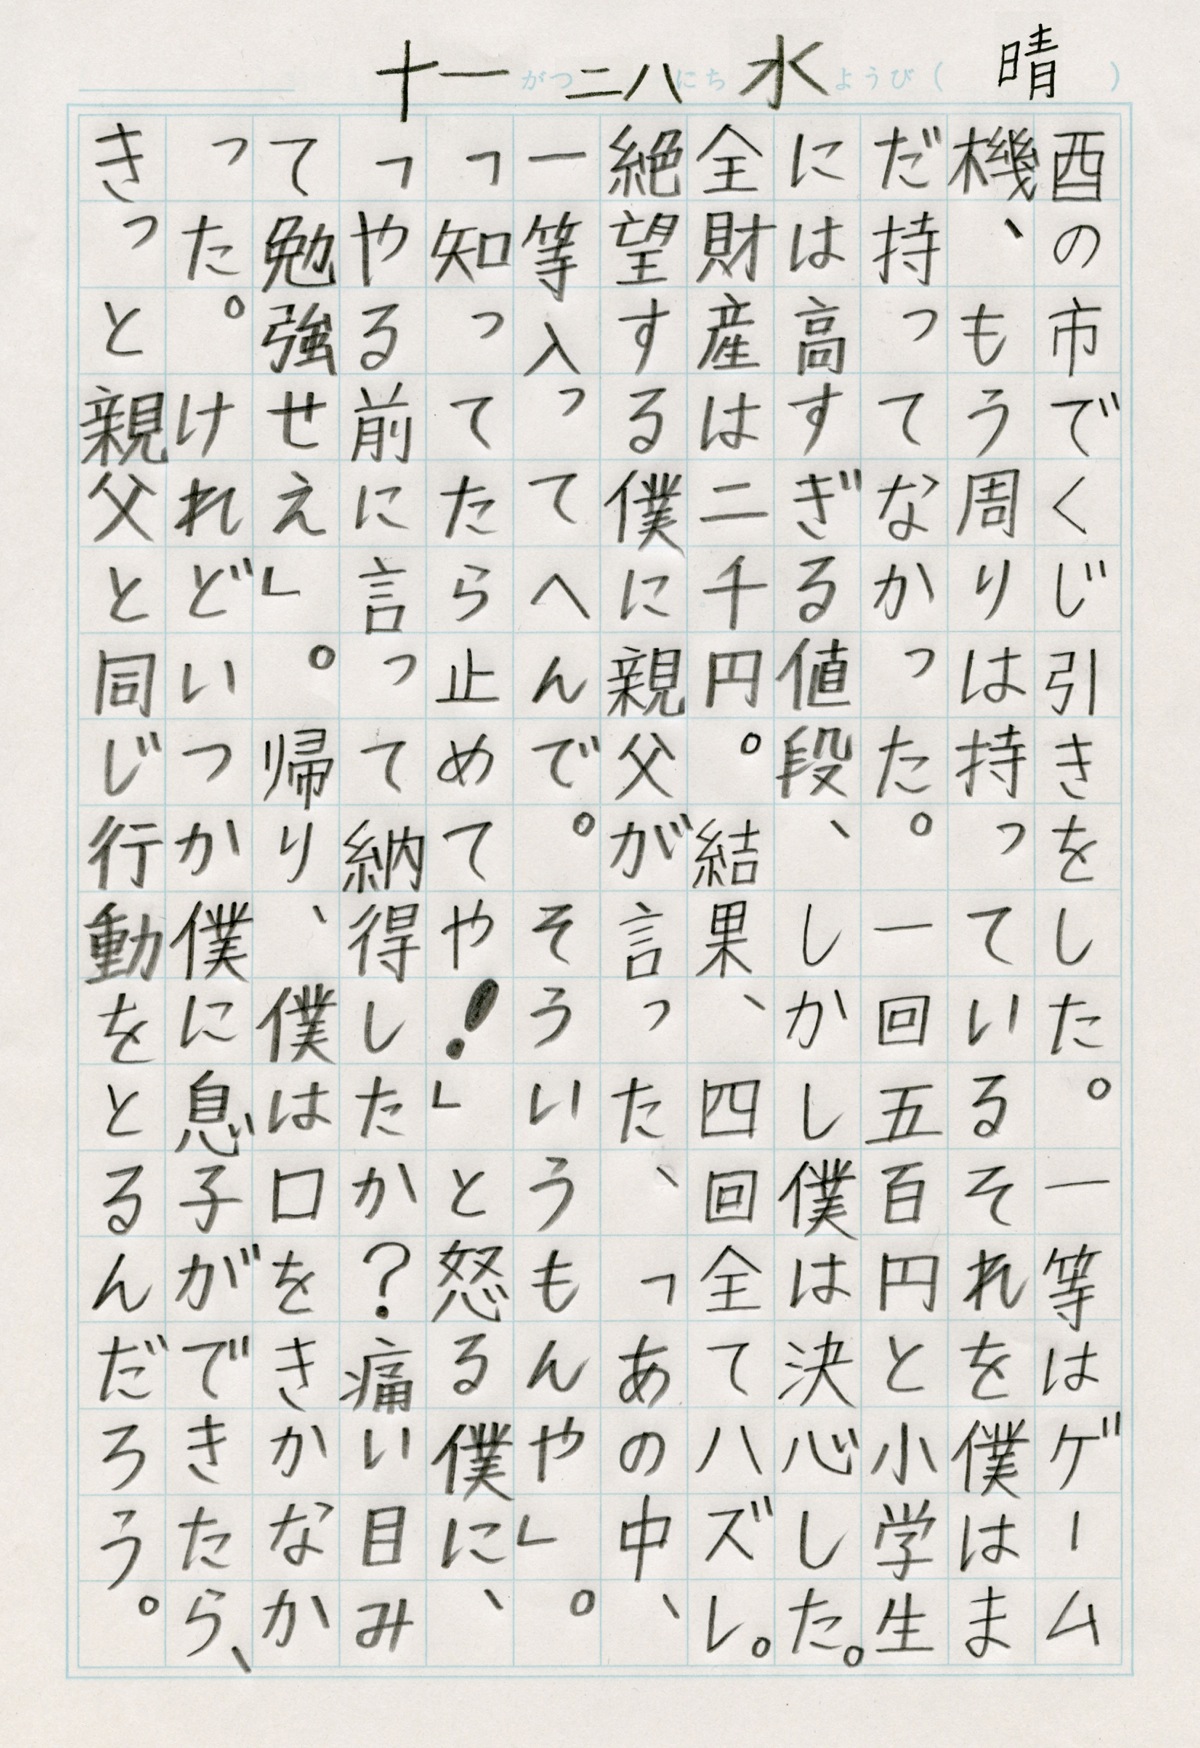 十一がつ二八にち水ようび(晴)
酉の市でくじ引きをした。一等はゲーム
機、もう周りは持っているそれを僕はま
だ持ってなかった。一回五百円と小学生
には高すぎる値段、しかし僕は決心した。
全財産は二千円。結果、四回全てハズレ。
絶望する僕に親父が言った、「あの中、
一等入ってへんで。そういうもんや」。
「知ってたら止めてや!」と怒る僕に、
「やる前に言って納得したか?痛い目み
て勉強せえ」。帰り、僕は口をきかなか
った。けれどいつか僕に息子ができたら、
きっと親父と同じ行動をとるんだろう。